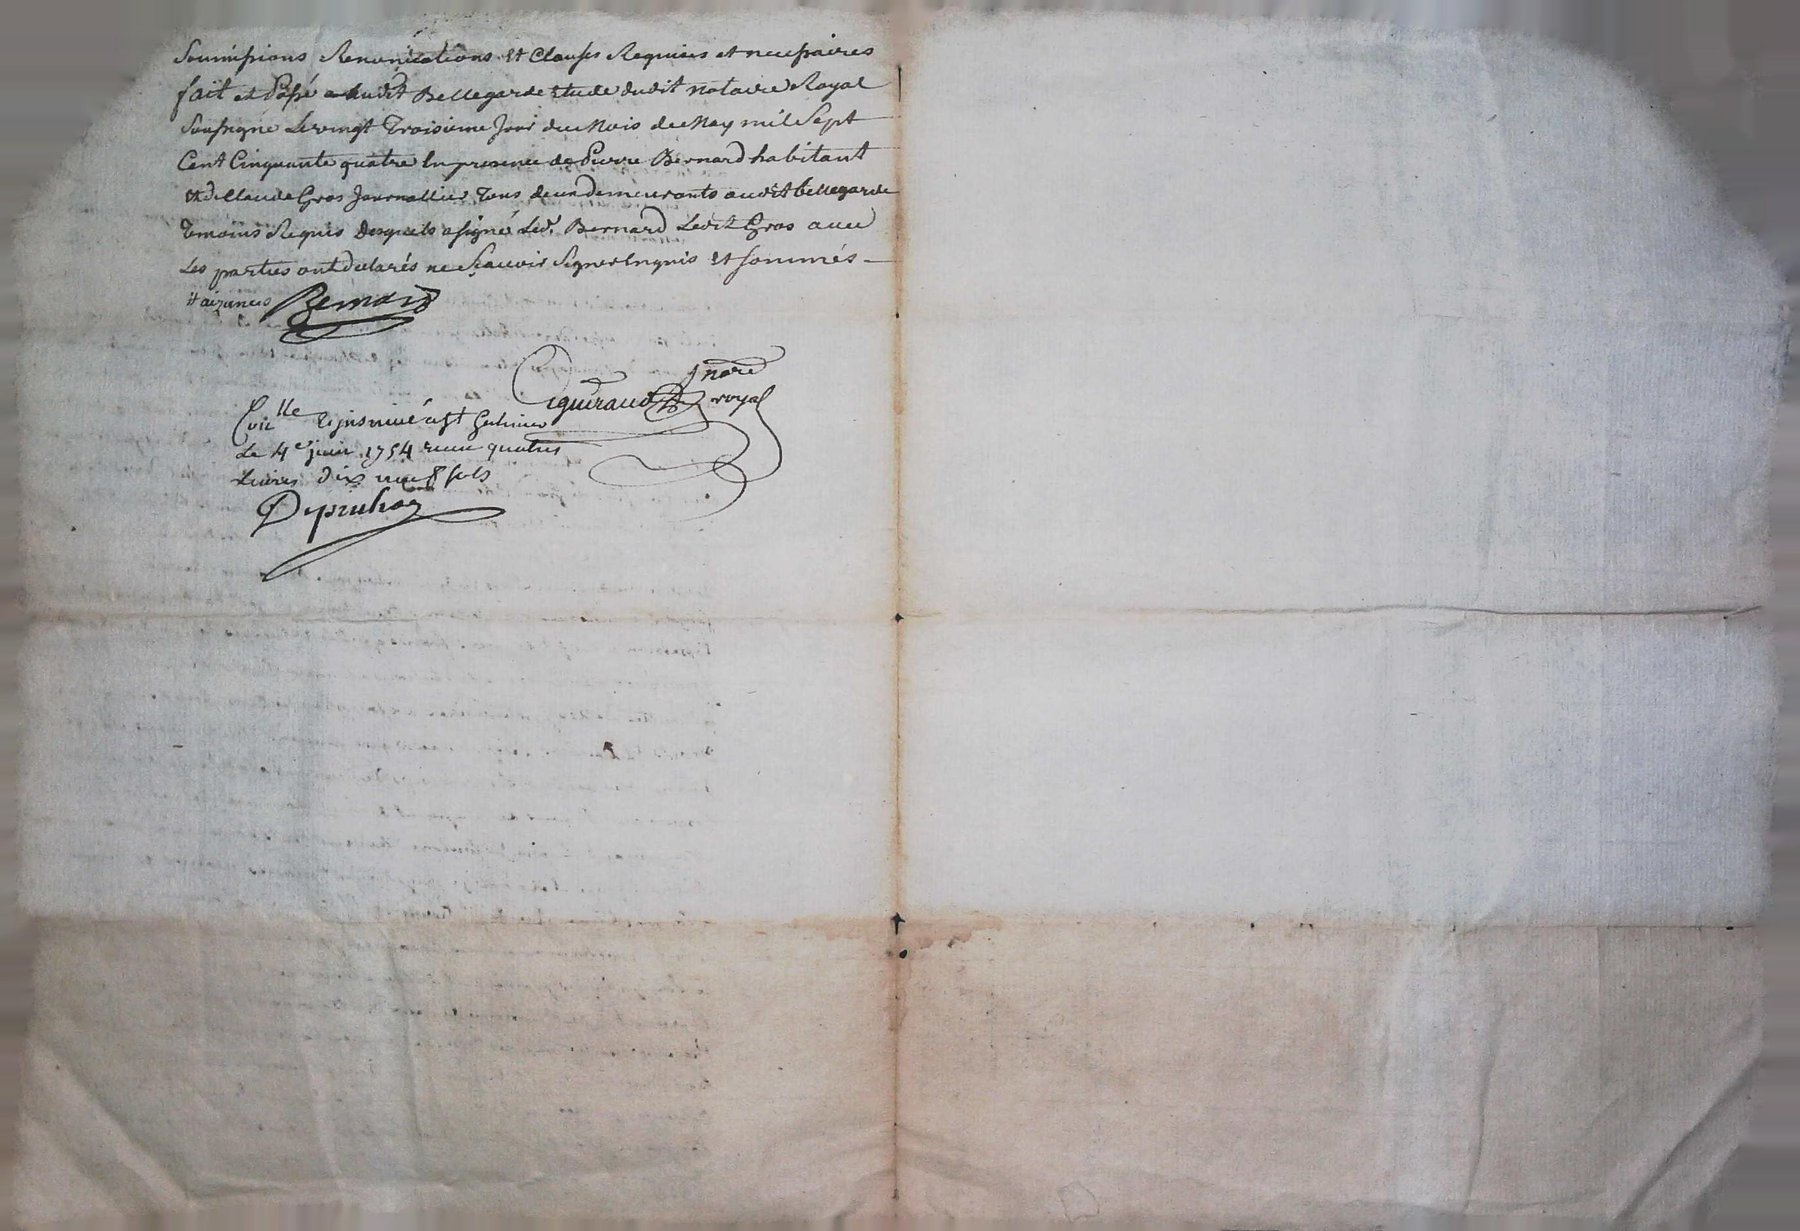 Soumissions Renonciations et Clauses Requises et necessaires
fait et Passé audit Bellegarde Etude dudit notaire Royal
Soussigné Le vingt Troisieme Jour du Mois de May mil Sept
Cent Cinquante quatre En presence de Pierre Bernard habitant
et de Claude Gros Journallier Tous deux demeurants audit bellegarde
Temoins Requis Desquels a signé Led. Bernard Ledit Gros avec
Les parties ont declarés ne Scavoir Signer Enquis et sommés
Bernard
nore
royal
Con lle
Le 4e juin 1754 quatres
Livres dix neuf sols